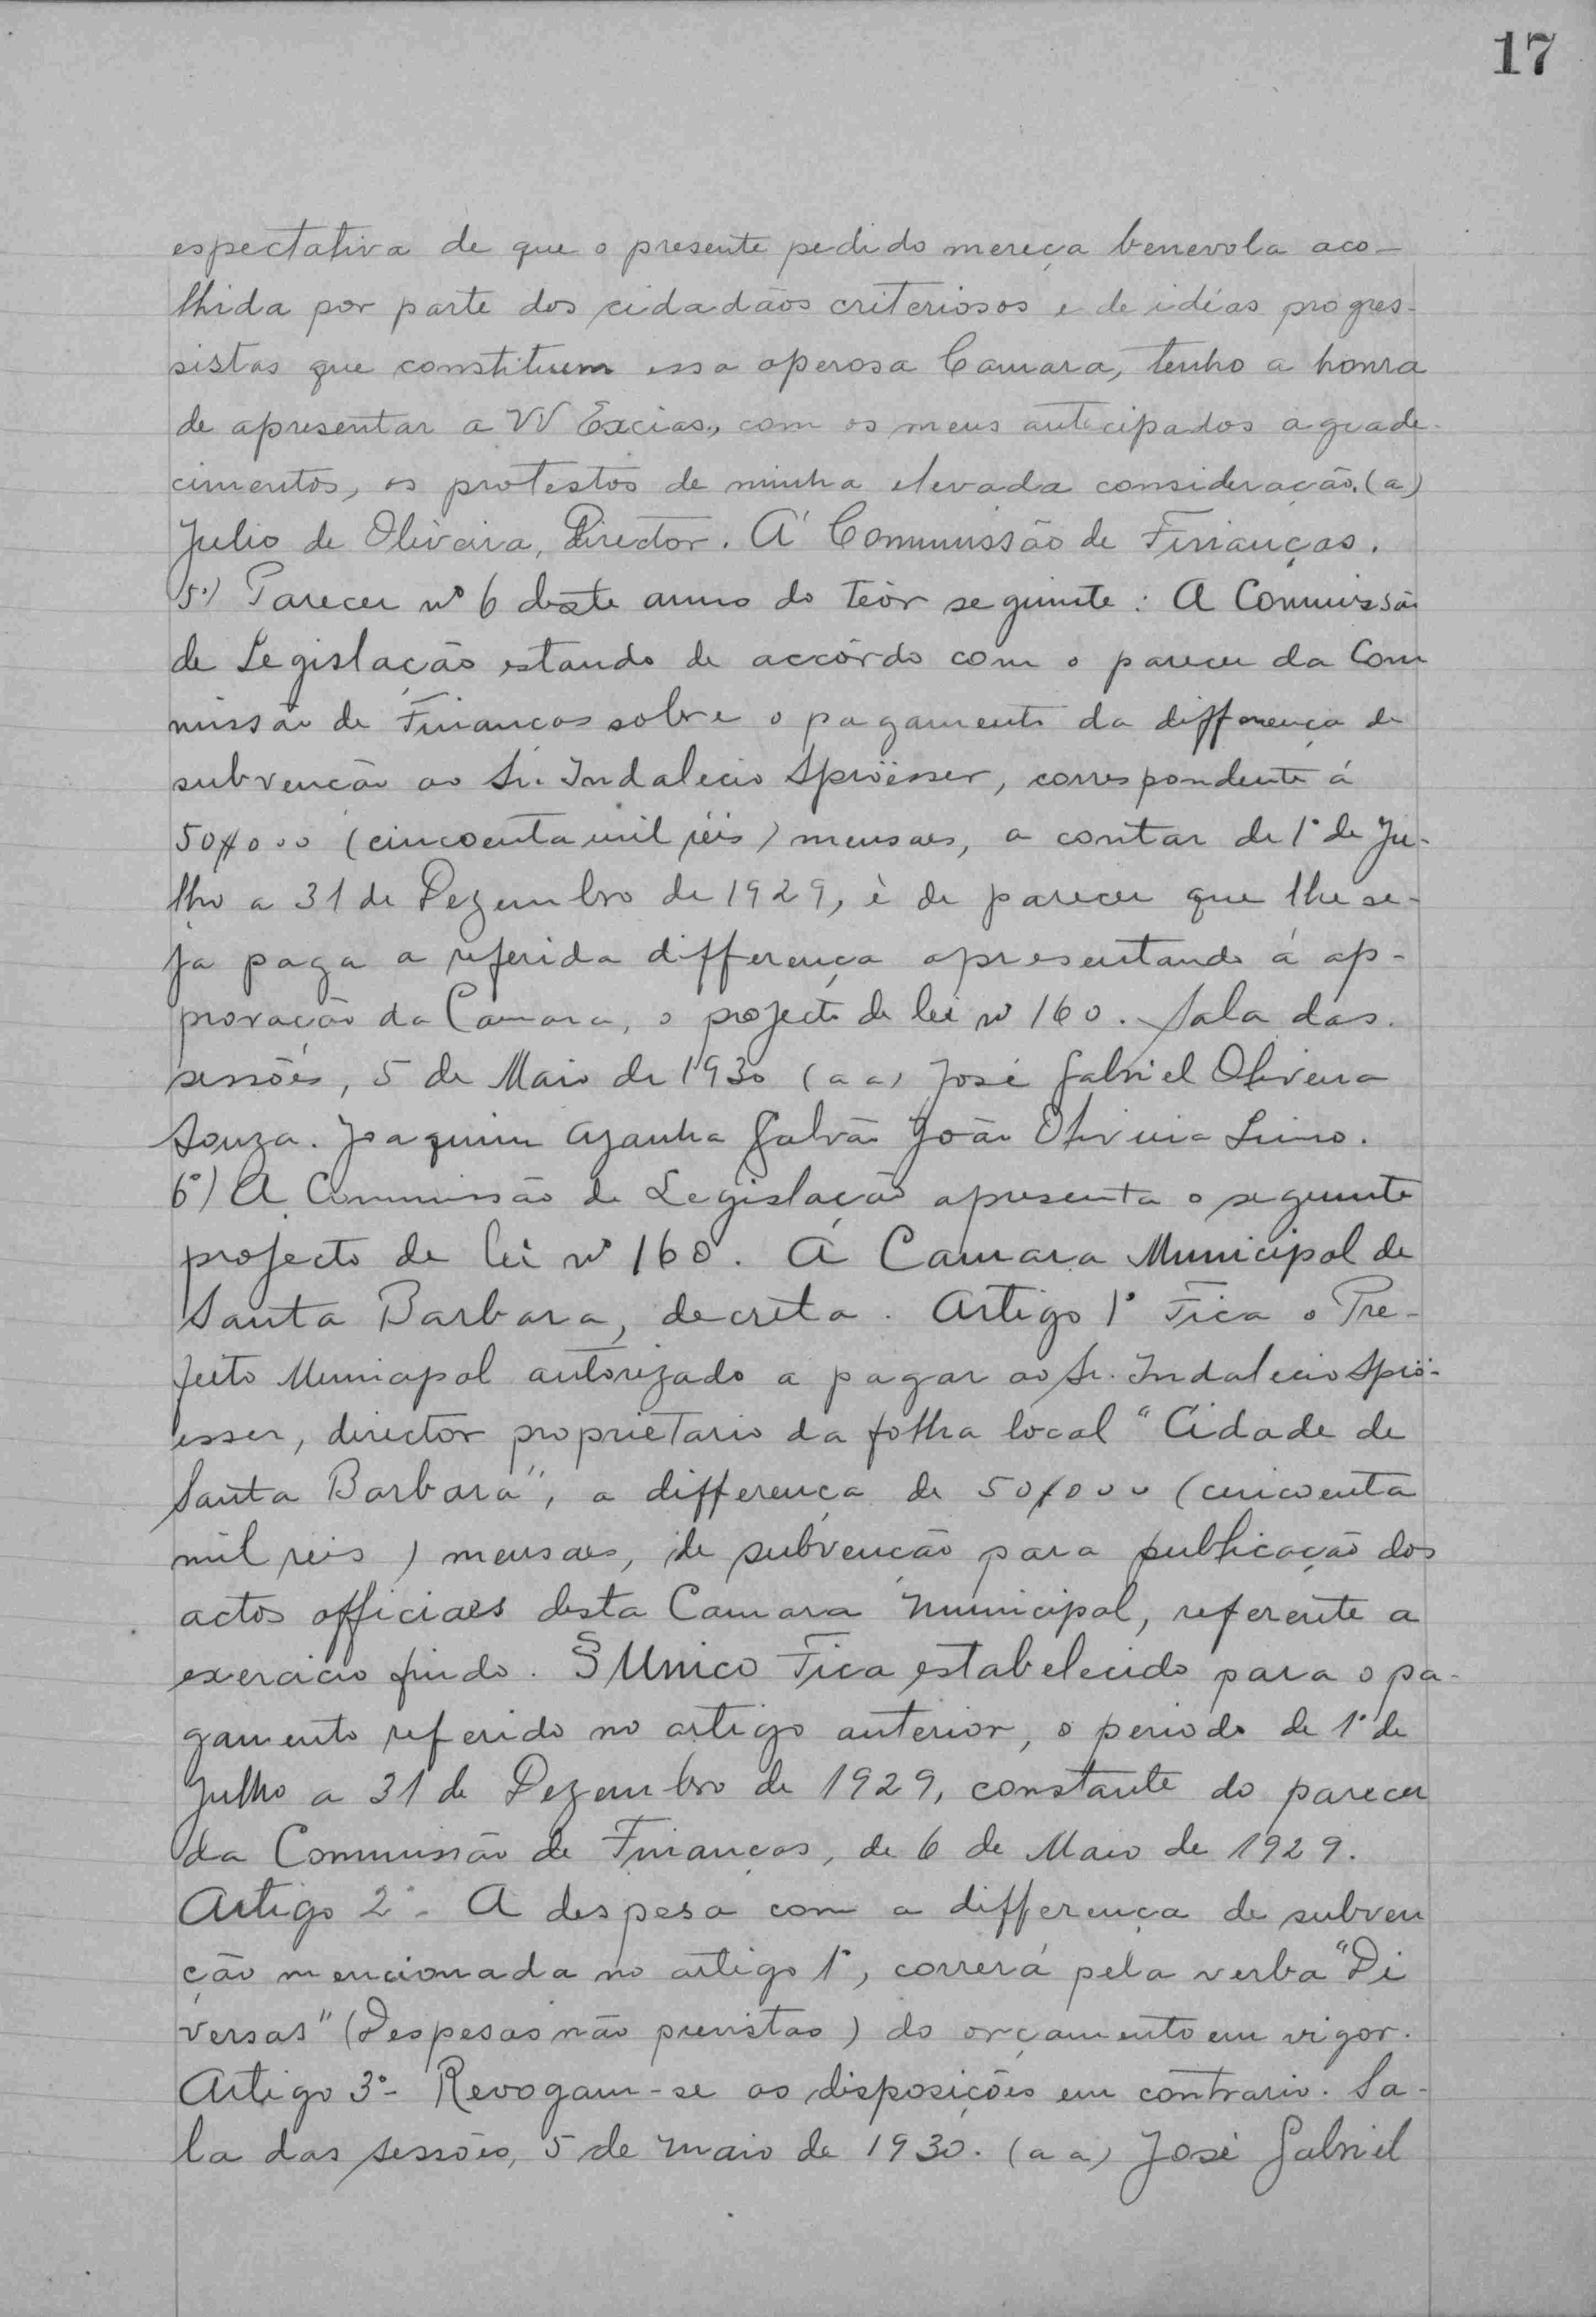 17
espectativa de que o presente pedido mereça benevola aco-
lhida por parte dos cidadãos criteriosos e de idéias progres-
sistas que constituem essa operosa Camara, tenho a honra
de apresentar a VV Excias., com os meus antecipados agrade-
cimentos, os protestos de minha elevada consideração. (a)
Julio de Oliveira, Director. Á Commissão de Finanças.
5º) Parecer nº 6 deste anno do teôr seguinte: A Commissão
de Legislação estando de accôrdo com o parecer da Com
missão de Finanças sobre o pagamento da differença de
subvenção ao Sr. Indalecio Spröesser, correspondente á
50$000 (cincoenta mil réis) mensaes, a contar de 1º de Ju-
lho a 31 de Dezembro de 1929, é de parecer que lhe se-
ja paga a referida differença apresentando á ap-
provação da Camara, o projecto de lei nº 160. Sala das
sessões, 5 de Maio de 1930 (a a) José Gabriel Oliveira
Souza. Joaquim Azanha Galvão João Oliveira Lino.
6º) A Commissão de Legislação apresenta o seguinte
projecto de lei nº 160. Á Camara Municipal de
Santa Barbara, decreta. Artigo 1º Fica o Pre-
feito Municipal autorizado a pagar ao Sr. Indalecio Sprö-
esser, director proprietario da folha local "Cidade de
Santa Barbara", a differença de 50$000 (cincoenta
mil reis) mensaes, de subvenção para publicação dos
actos officiaes desta Camara Municipal, referente a
exercicio findo. § Unico Fica estabelecido para o pa-
gamento referido no artigo anterior, o periodo de 1º de
Julho a 31 de Dezembro de 1929, constante do parecer
da Commissão de Finanças, de 6 de Maio de 1929.
Artigo 2º - A despesa com a differença de subven
ção mencionada no artigo 1º, correrá pela verba "Di
versas" (Despesas não previstas) do orçamento em vigor.
Artigo 3º - Revogam-se as disposições em contrario. Sa-
la das sessões, 5 de Maio de 1930. (a a) José Gabriel